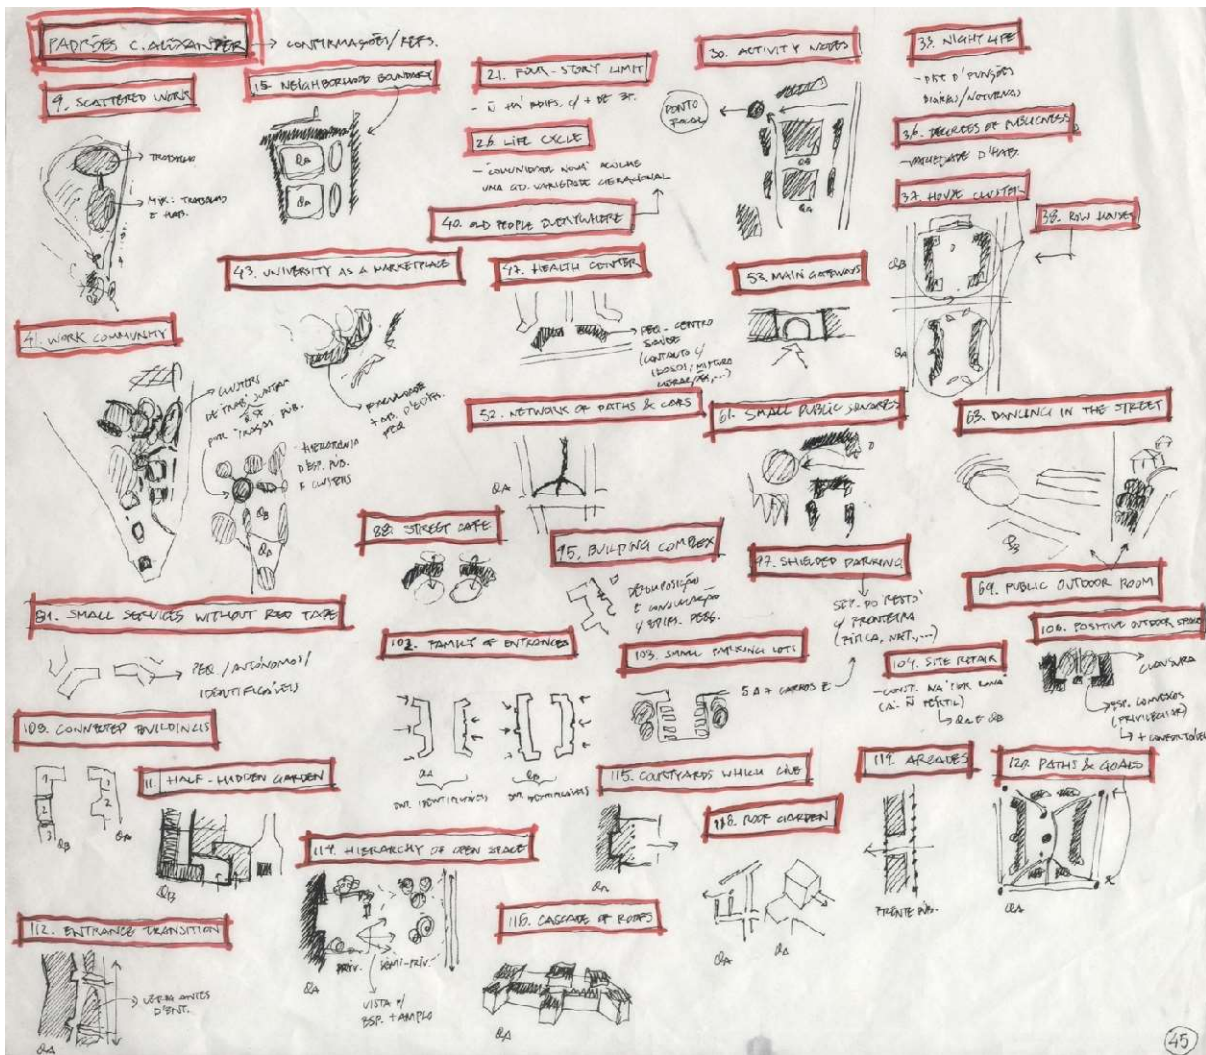 PADRÕES C. ALEXANDER → CONFIRMAÇÕES/REFS.
9. SCATTERED WORK
TRABALHO
MIX: TRABALHO
E HAB.
15. NEIGHBORHOOD BOUNDARY
QA
QA
21. FOUR-STORY LIMIT
- Ñ HÁ EDIFS. C/ + DE 3P.
26. LIFE CYCLE
- COMUNIDADE NOVA ACOLHE
UMA GD. VARIEDADE GERACIONAL
40. OLD PEOPLE EVERYWHERE
30. ACTIVITY NODES
PONTO
FOCAL
QB
QA
33. NIGHT LIFE
- DIST. D'FUNÇÕES
DIURNAS/NOTURNAS
36. DEGREES OF PUBLICNESS
- VARIEDADE D'HAB.
37. HOUSE CLUSTER
38. ROW HOUSES
QB
QA
43. UNIVERSITY AS A MARKETPLACE
FACULDADE
+ AB. D'EDIFS.
PEQ.
47. HEALTH CENTER
PEQ. CENTRO
SAÚDE
(CONTACTO C/
IDOSOS, MISTURA
GERAÇÕES,...)
53. MAIN GATEWAYS
41. WORK COMMUNITY
CLUSTERS
DE TRAB. JUNTAM
-SE
POR ESPAÇOS PÚB.
- HIERARQUIA
D'ESP. PÚB.
E CLUSTERS
QB
QA
52. NETWORK OF PATHS & CARS
QA
61. SMALL PUBLIC SQUARES
63. DANCING IN THE STREET
QB
69. PUBLIC OUTDOOR ROOM
88. STREET CAFE
95. BUILDING COMPLEX
DECOMPOSIÇÃO
E CONJUGAÇÃO
C/ EDIFS. PEQS.
97. SHIELDED PARKING
SEP. DO RESTO
C/ FRONTEIRA
(FÍSICA, NAT.,...)
81. SMALL SERVICES WITHOUT RED TAPE
PEQ./AUTÓNOMOS/
IDENTIFICÁVEIS
102. FAMILY OF ENTRANCES
QA
QB
ENT. IDENTIFICÁVEIS
ENT. IDENTIFICÁVEIS
103. SMALL PARKING LOTS
5 A 7 CARROS E
104. SITE REPAIR
- CONST. NA PIOR ZONA
(AÍ Ñ FÉRTIL)
QA E QB
106. POSITIVE OUTDOOR SPACE
CLAUSURA
ESP. CONVEXOS
(PRIVILEGIAR)
+ CONFORTÁVEL
108. CONNECTED BUILDINGS
1
2
3
QB
1
2
QA
111. HALF-HIDDEN GARDEN
QB
114. HIERARCHY OF OPEN SPACE
PRIV.
SEMI-PRIV.
QA
VISTA P/
ESP. + AMPLO
115. COURTYARDS WHICH LIVE
QA
118. ROOF GARDEN
QB
QA
119. ARCADES
FRENTE PÚB.
120. PATHS & GOALS
QA
112. ENTRANCE TRANSITION
ANTES
D'ENT.
QA
116. CASCADE OF ROOFS
QA
45